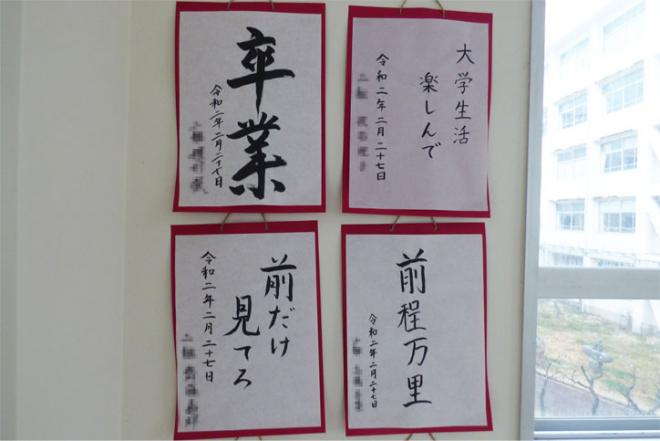 卒業
令和二年二月二十七日
大学生活
楽しんで
令和二年二月二十七日
前だけ
見てろ
令和二年二月二十七日
前程万里
令和二年二月二十七日